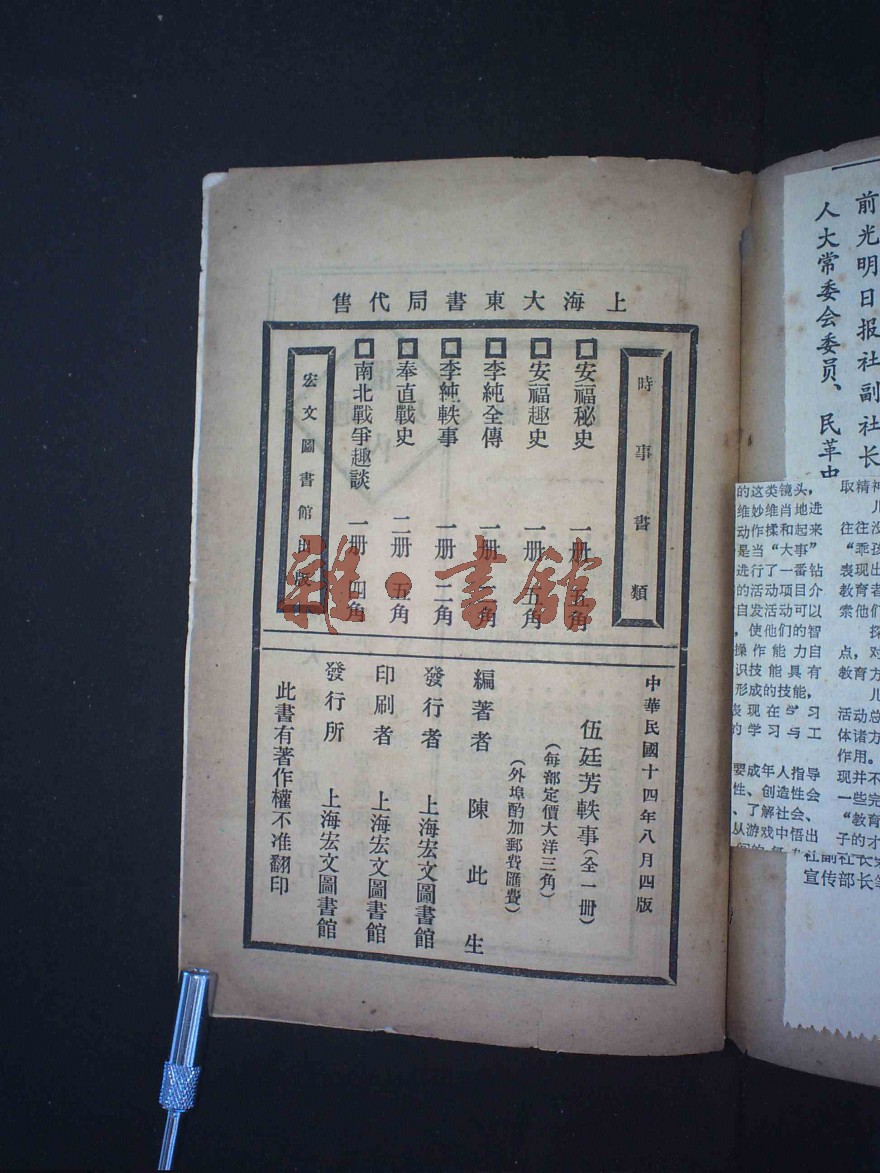 上海大東書局代售
時事書類
安福秘史 一册 五角
安福趣史 一册 五角
李純全傳 一册 二角
李純軼事 一册 二角
奉直戰史 二册 五角
南北戰爭趣談 一册 四角
宏文圖書館出版
中華民國十四年八月四版
伍廷芳軼事(全一册)
(每部定價大洋三角)
(外埠酌加郵費匯費)
編著者 陳此生
發行者 上海宏文圖書館
印刷者 上海宏文圖書館
發行所 上海宏文圖書館
此書有著作權不准翻印
雜·書館
前光明日报社副社长
人大常委会委员、民革中
的这类镜头,
维妙维肖地进
动作揉和起来
是当“大事”
进行了一番钻
的活动项目介
自发活动可以
,使他们的智
操作能力自
识技能具有
形成的技能,
表现在学习
的学习与工
要成年人指导
性、创造性会
、了解社会、
从游戏中悟出
取精神
儿
往往没
“乖孩
表现出
教育者
索他们
探
点,对
教育方
儿
活动总
体诸方
作用。
现并不
一些完
“教育
子的才
社副社长
宣传部长等